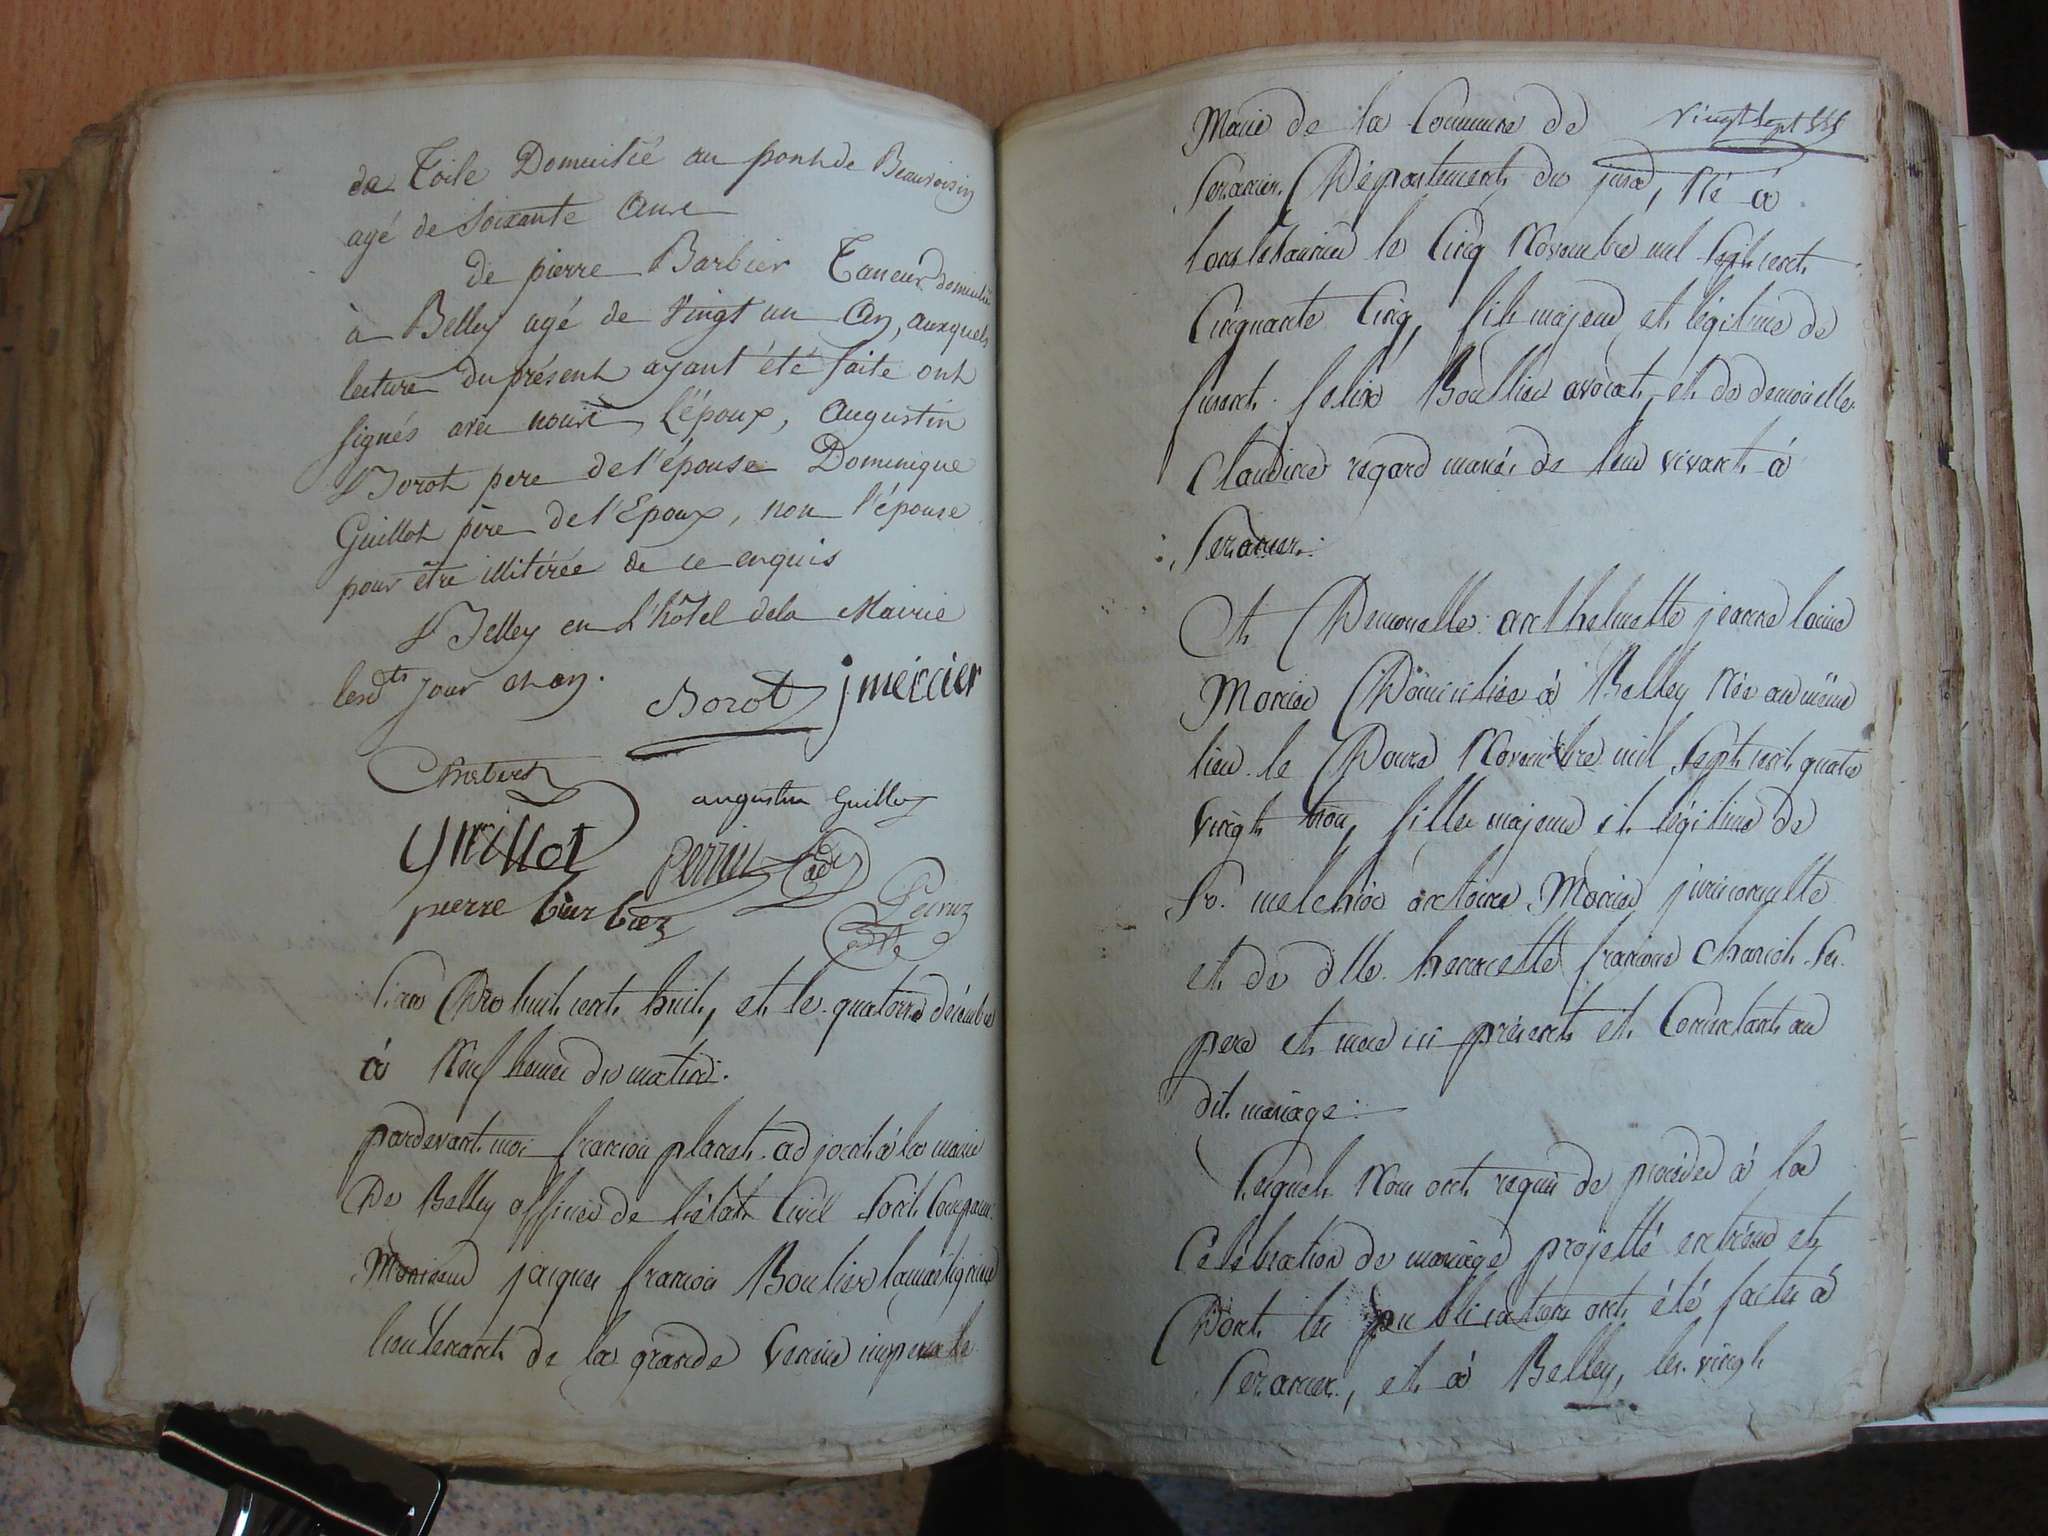 de Toile Domicilié au pont de Beauvoisin
agé de soixante Ans
de pierre Barbier Taneur domicilié
à Belley agé de Vingt un An, auxquels
lecture du présent ayant été faite ont
signés avec nous l'époux, Augustin
Borot pere de l'épouse Dominique
Guillot père de l'Epoux, non l'épouse
pour être illitérée de ce enquis
Belley en L'hôtel de la Mairie
lesdts jour et an.
Borot j mercier
augustin Guillot
Guillot perrin
pierre barbier
L'an Dix huit cent huit, et le quatorze décembre
à Neuf heures du matin.
pardevant moi françois planet adjoint à la mairie
De Belley officier de l'état Civil sont comparu
Monsieur jacques françois Boulier
lieutenant de la grande Venerie imperiale
Vingt sept
Maire de la Commune de
Sezanier Département du jura, Né à
lonslesaunier le Cinq Novembre mil sept cent
Cinquante Cinq, fils majeur et légitime de
furent felix Boullier avocat et de demoiselle
Claudine regard mariés de leur vivant à
Sezanier.
Et Demoiselle anthelmette jeanne louise
Domiciliée à Belley Née au même
lieu le Douze Novembre mil sept cent quatre
vingt trois, fille majeure et légitime de
Sr. melchior antoine jurisconsulte
et de dlle. françoise ses
pere et mere ici présents et Consentants au
dit mariage:
Lesquels Nous ont requis de procéder à la
Célébration du mariage projetté entr'eux et
Dont les publications ont été faites à
Sezanier, et à Belley, les vingt